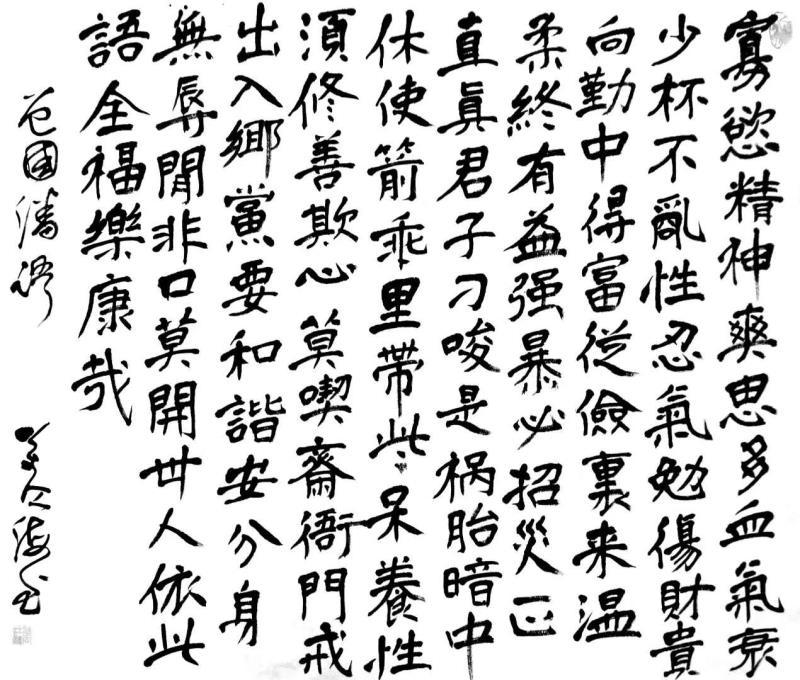 寡慾精神爽思多血氣衰
少杯不亂性忍氣勉傷財貴
向勤中得富從儉裏来温
柔終有益强暴必招災正
直眞君子刁唆是祸胎暗中
休使箭乖里帶些呆養性
須修善欺心莫喫齋衙門戒
出入鄉黨要和諧安分身
無辱閒非口莫開世人依此
語全福樂康哉